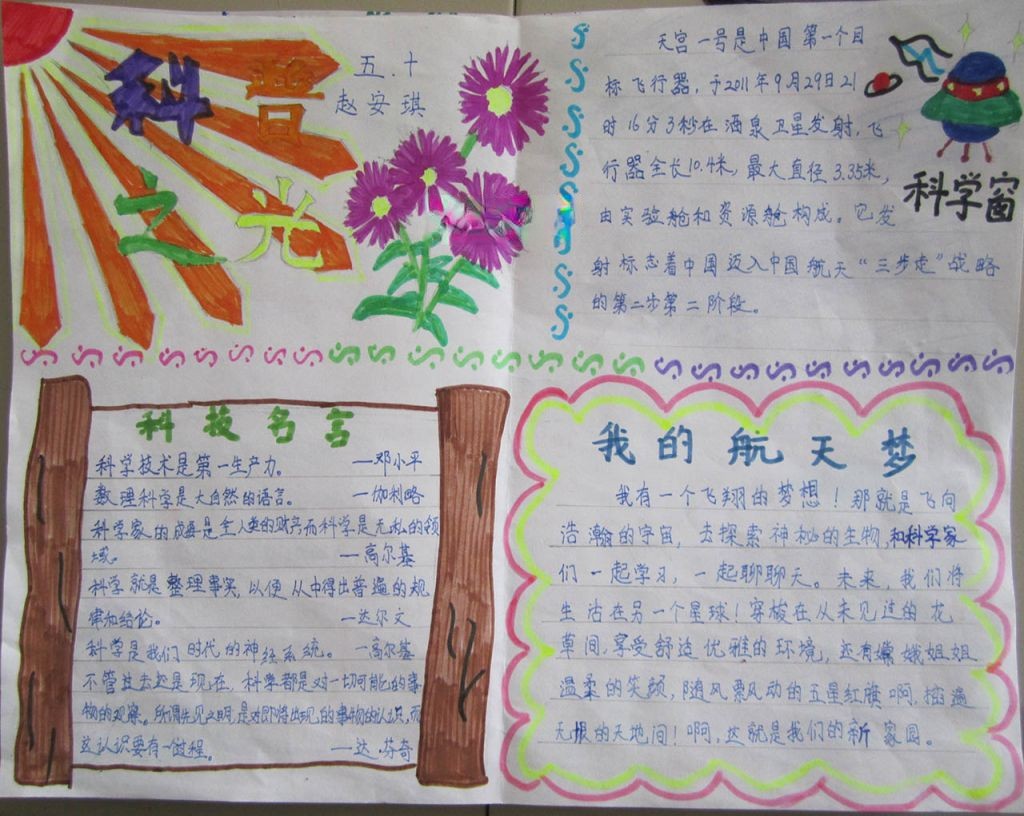 科普
之光
五.十
赵安琪
天宫一号是中国第一个目
标飞行器，于2011年9月29日21
时16分3秒在酒泉卫星发射，飞
行器全长10.4米，最大直径3.35米，
由实验舱和资源舱构成。它发
射标志着中国迈入中国航天“三步走”战略
的第二步第二阶段。
科学窗
科技名言
科学技术是第一生产力。 —邓小平
数理科学是大自然的语言。 —伽利略
科学家的成果是全人类的财产而科学是无私的领
域。 —高尔基
科学就是整理事实，以便从中得出普遍的规
律和结论。 —达尔文
科学是我们时代的神经系统。 —高尔基
不管过去还是现在，科学都是对一切可能的事
物的观察。所谓先见之明，是对即将出现的事物的认识，而
这认识要有一过程。 —达.芬奇
我的航天梦
我有一个飞翔的梦想！那就是飞向
浩瀚的宇宙，去探索神秘的生物，和科学家
们一起学习，一起聊聊天。未来，我们将
生活在另一个星球！穿梭在从未见过的花
草间，享受舒适优雅的环境，还有嫦娥姐姐
温柔的笑颜，随风飘动的五星红旗啊，
天根的天地间！啊，这就是我们的新家园。